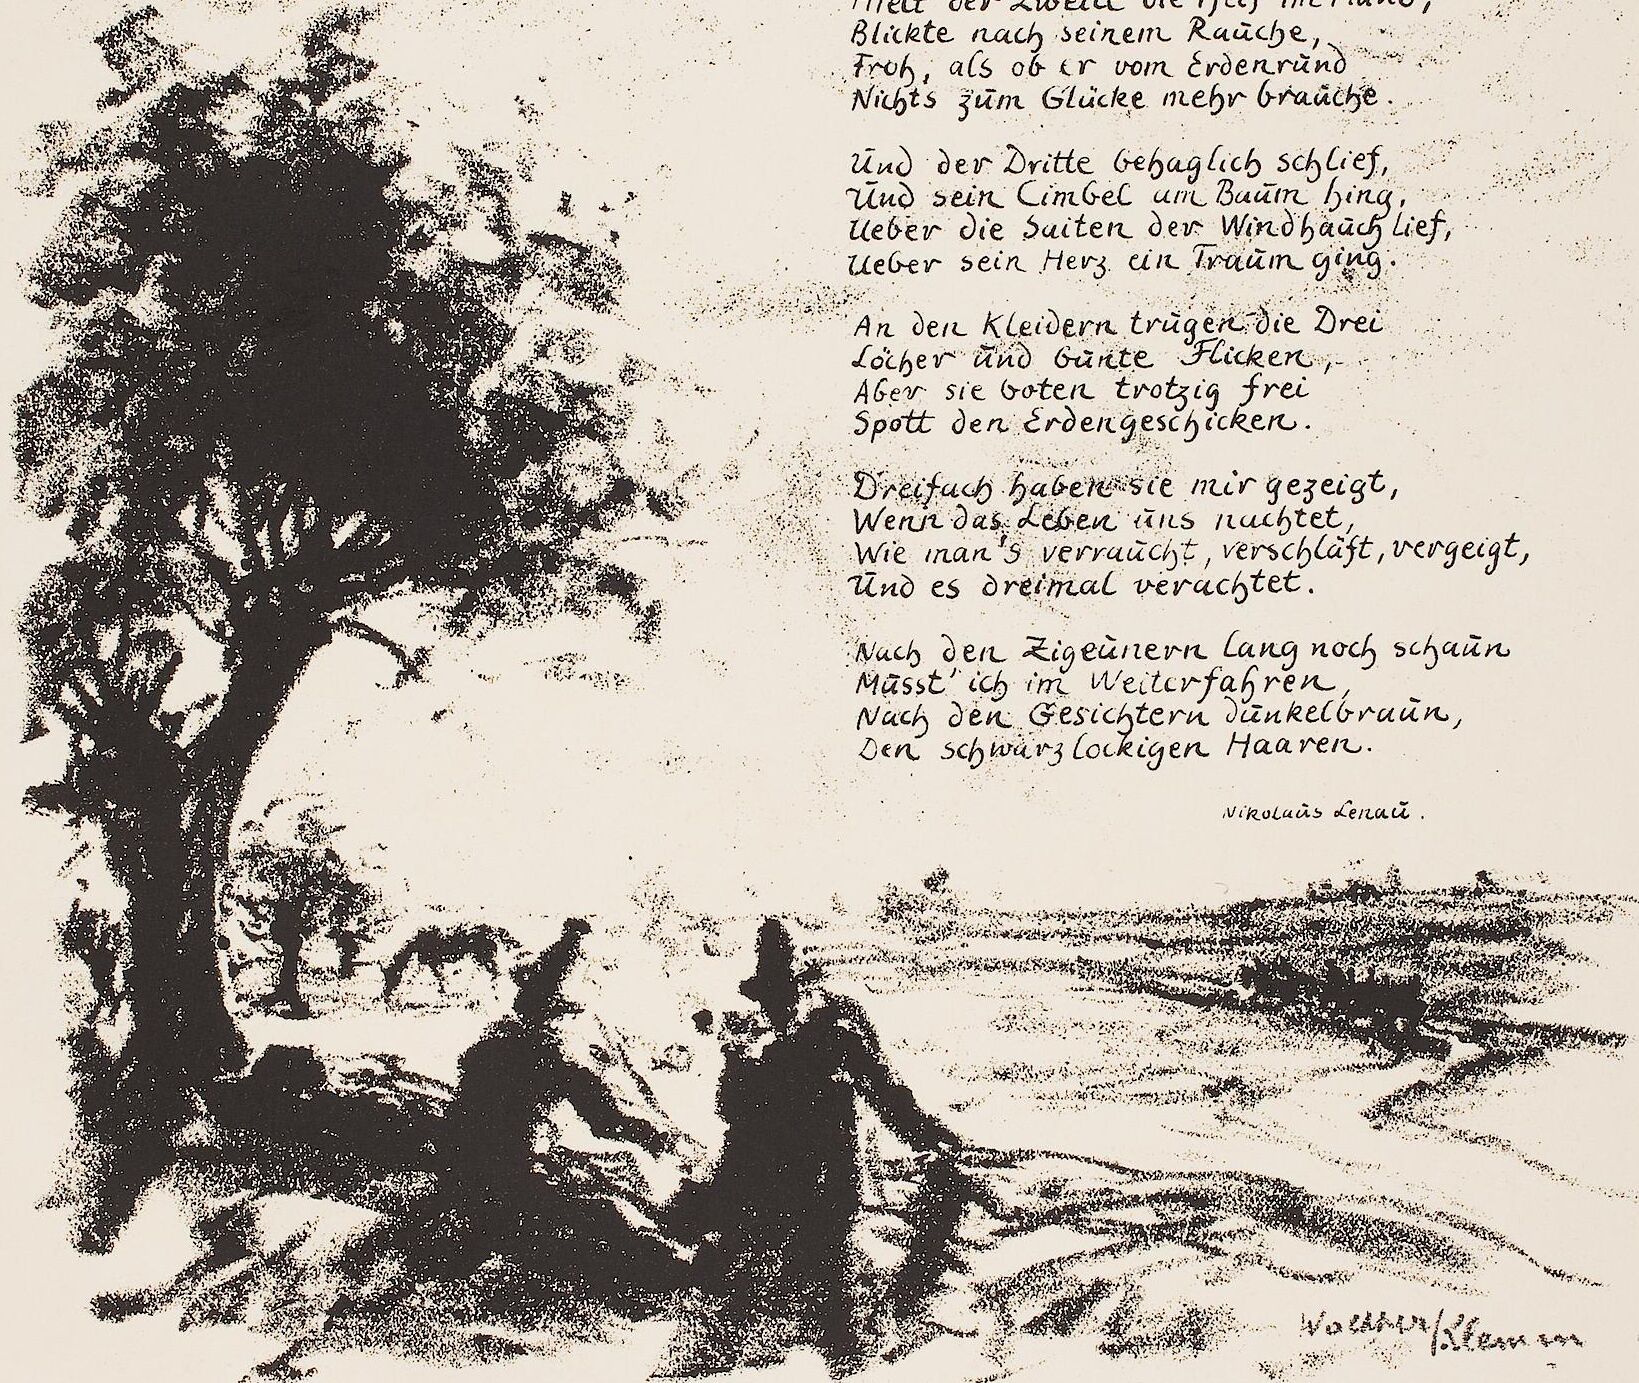 Hielt der Zweite die Pfeif' im Mund,
Blickte nach seinem Rauche,
Froh, als ob er vom Erdenrund
Nichts zum Glücke mehr brauche.
Und der Dritte behaglich schlief,
Und sein Cimbel am Baum hing,
Ueber die Saiten der Windhauch lief,
Ueber sein Herz ein Traum ging.
An den Kleidern trugen die Drei
Löcher und bunte Flicken,
Aber sie boten trotzig frei
Spott den Erdengeschicken.
Dreifach haben sie mir gezeigt,
Wenn das Leben uns nachtet,
Wie man's verraucht, verschläft, vergeigt,
Und es dreimal verachtet.
Nach den Zigeunern lang noch schaun
Musst' ich im Weiterfahren,
Nach den Gesichtern dunkelbraun,
Den schwarzlockigen Haaren.
Nikolaus Lenau.
Klemm